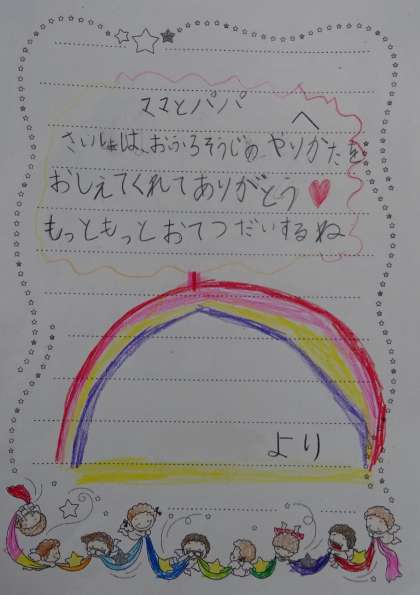 ママとパパ
へ
さいしょは、おふろそうじの やりかたを
おしえてくれてありがとう
もっともっとおてつだいするね
より